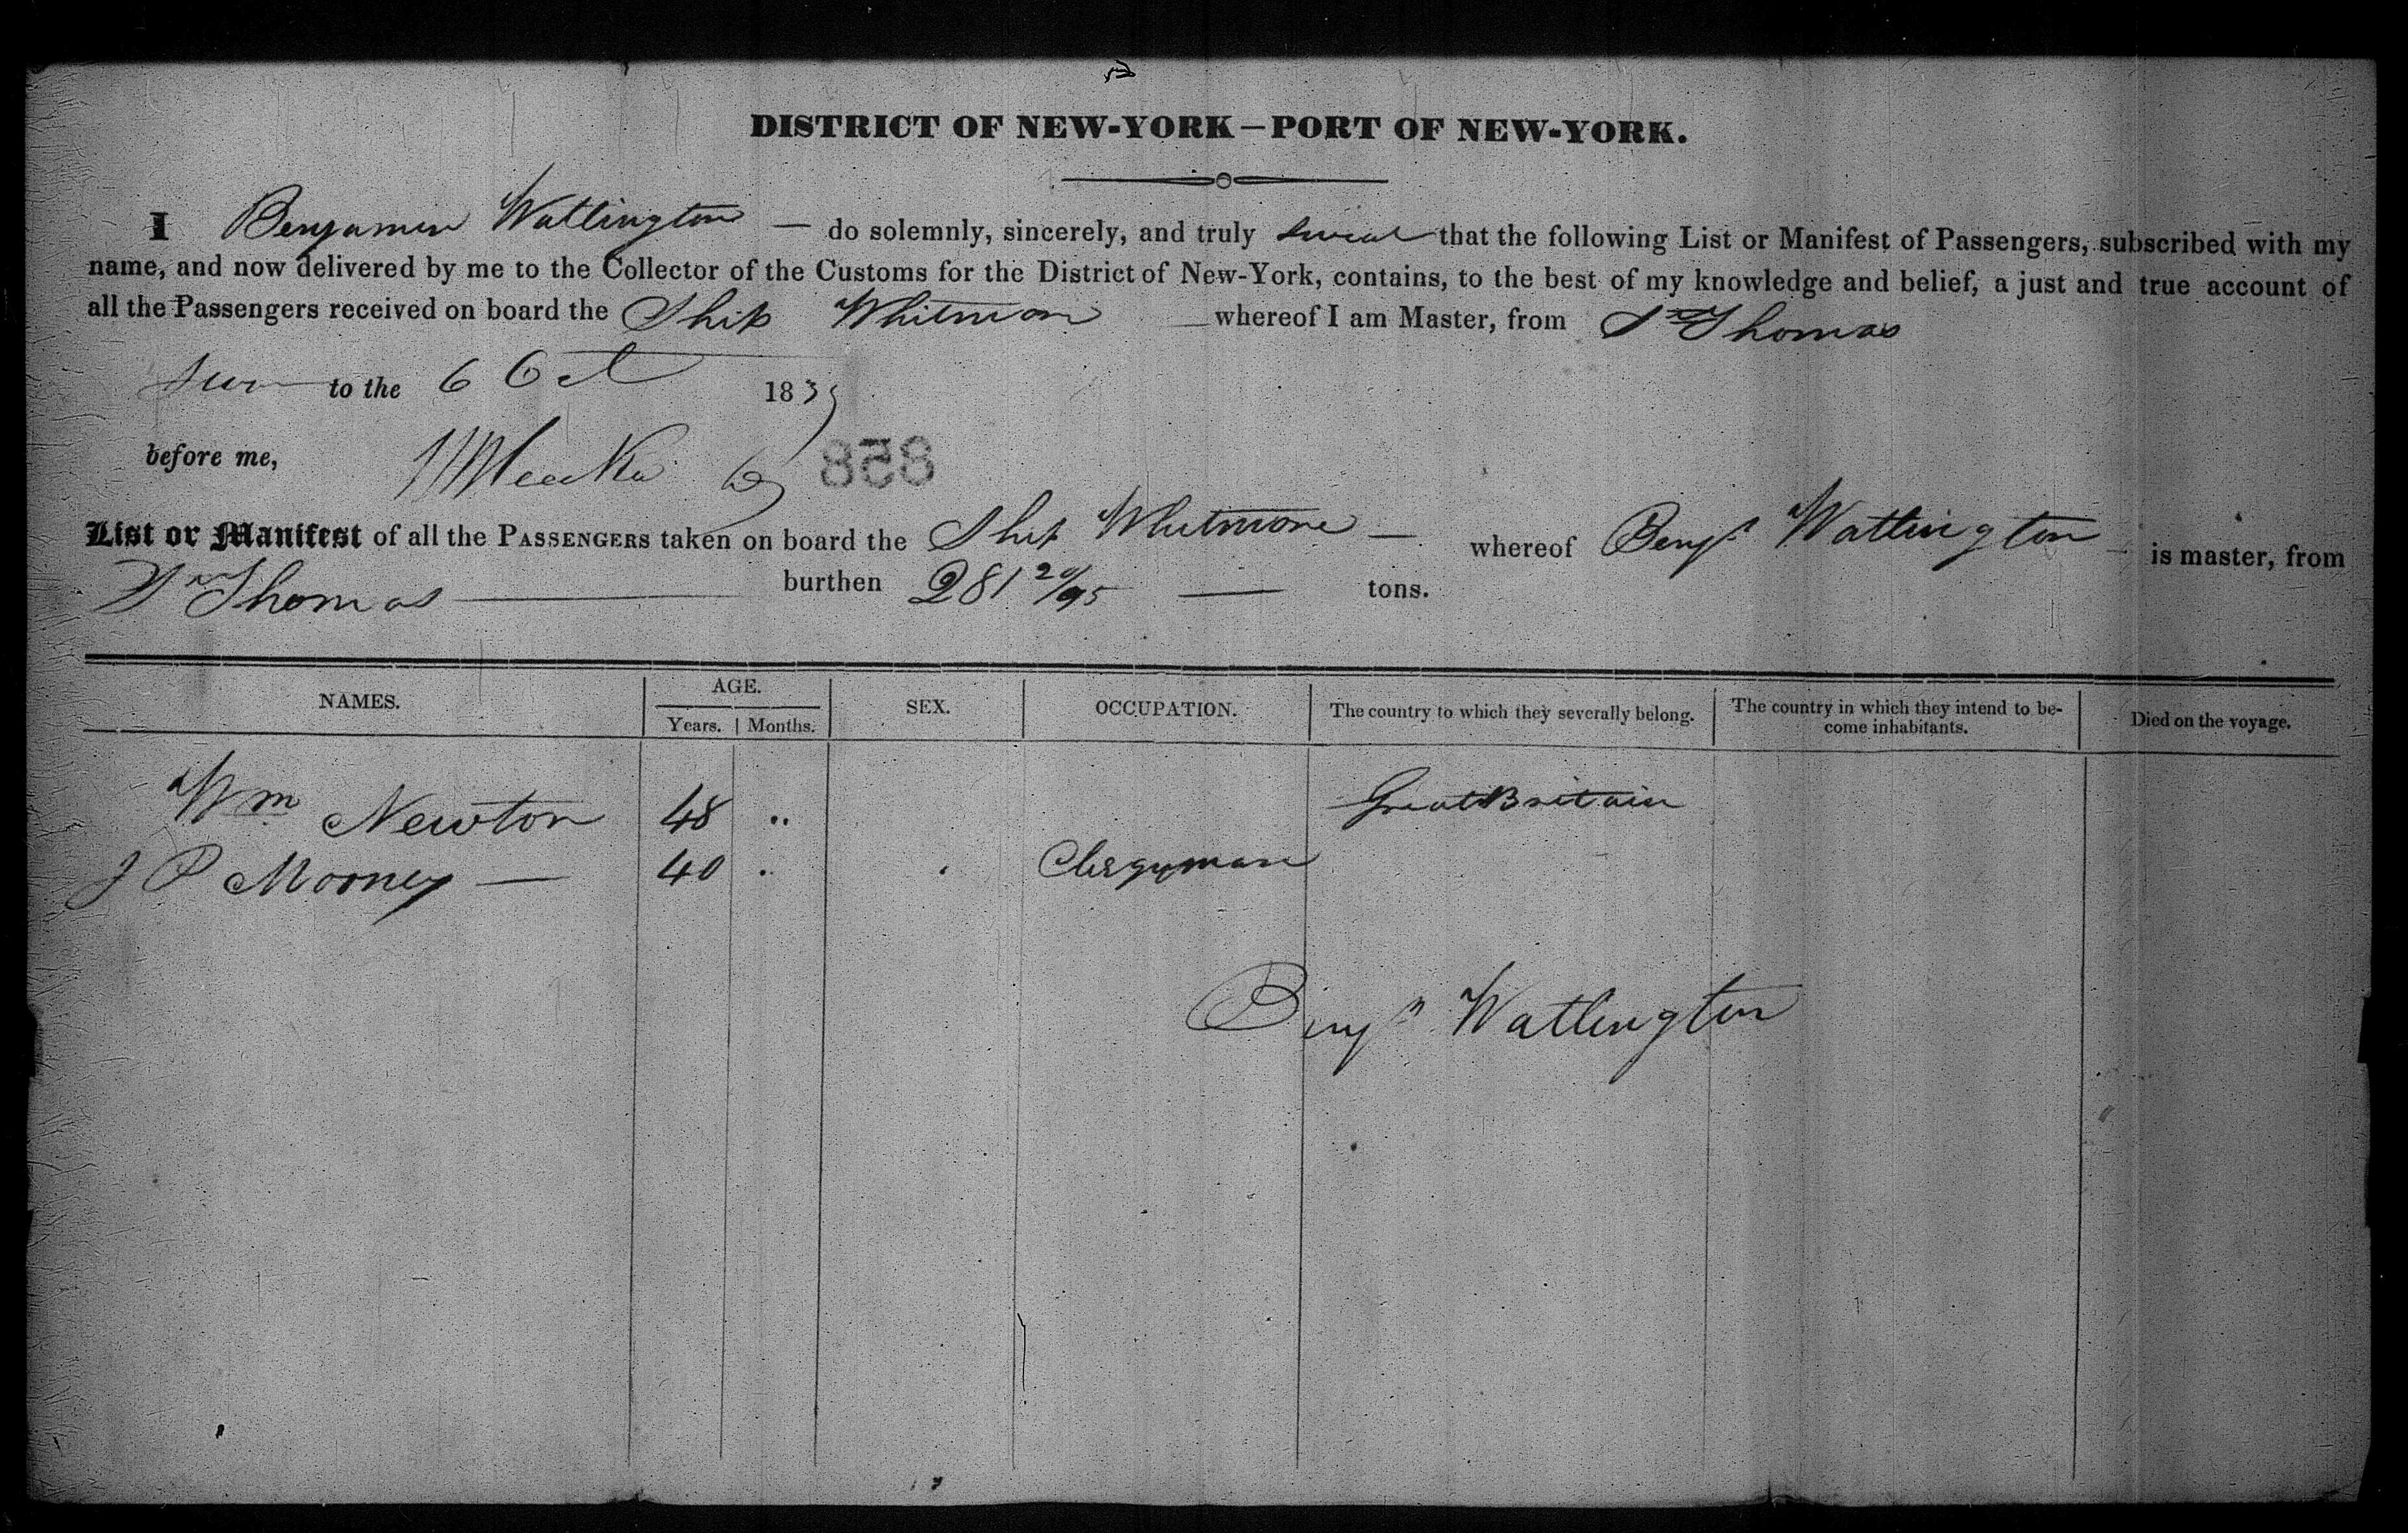 DISTRICT OF NEW-YORK—PORT OF NEW-YORK.
I Benjamin Watlington — do solemnly, sincerely, and truly swear that the following List or Manifest of Passengers, subscribed with my
name, and now delivered by me to the Collector of the Customs for the District of New-York, contains, to the best of my knowledge and belief, a just and true account of
all the Passengers received on board the Ship Whitmore whereof I am Master, from St Thomas
to the 6 Oct 183
before me,
858
List or Manifest of all the PASSENGERS taken on board the Ship Whitmore — whereof Benjn Watlington is master, from
St Thomas — burthen 281 20/95 — tons.
NAMES. AGE. SEX. OCCUPATION. The country to which they severally belong. The country in which they intend to be-
come inhabitants. Died on the voyage.
Years. Months.
Wm Newton 48 " Great Britain
J P Mooney — 40 . . Clergyman
Benjn Watlington